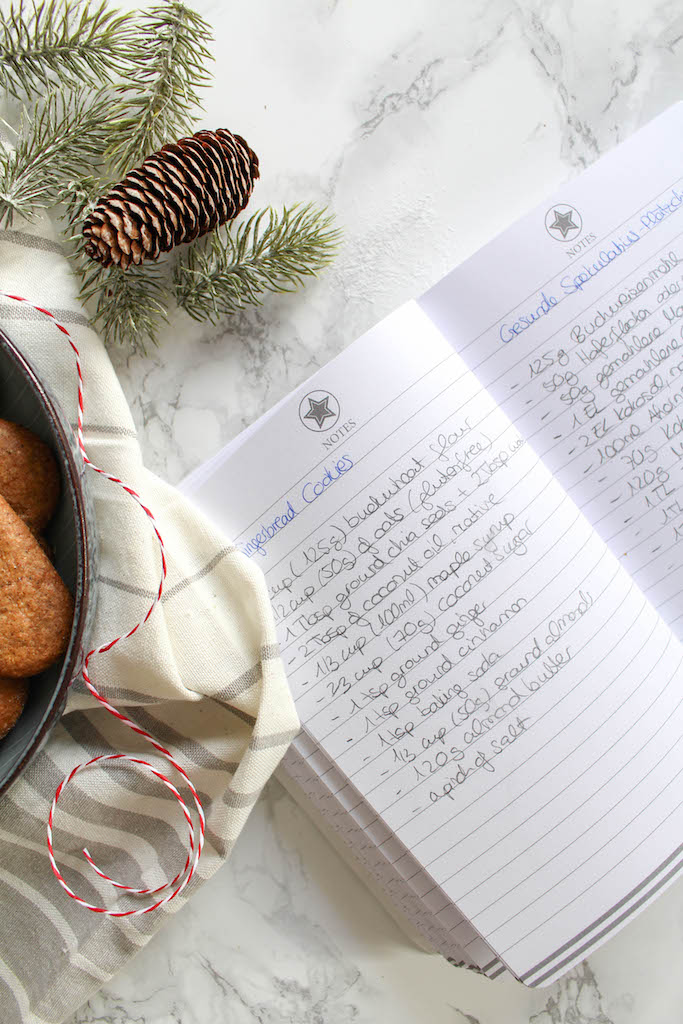 NOTES
Gingerbread Cookies
cup (125g) buckwheat flour
1/2 cup (50g) of oats (glutenfree)
1 Tbsp ground chia seeds + 2 Tbsp
2 Tbsp of coconut oil, native
- 1/3 cup (100ml) maple syrup
- 2/3 cup (70g) coconut sugar
- 1 tsp ground ginger
- 1 tsp ground cinnamon
- 1 tsp baking soda
- 1/3 cup (50g) ground almond
- 120g almond butter
- a pinch of salt
NOTES
Gesunde Spekulatius-
- 125g Buchweizenmehl
- 50g Haferflocken
- 50g gemahlene
- 1 EL gemahlene
- 2 EL Kokosöl,
- 100ml
- 70g
- 120g
- 1 TL
- 1 TL
- 1 TL